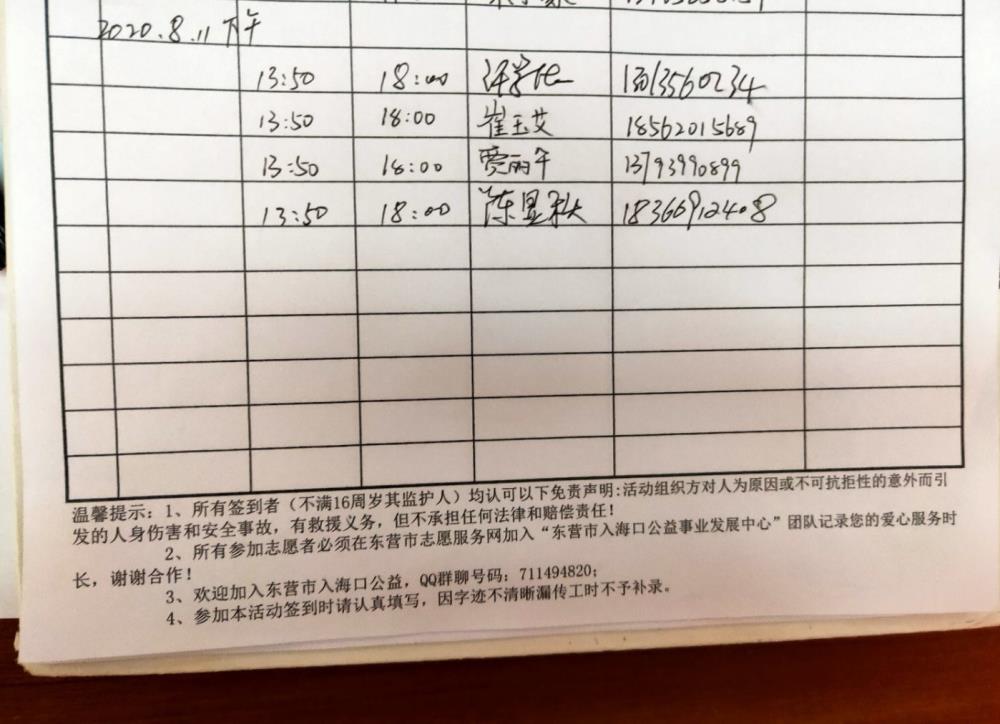 2020.8.11下午
13:50 18:00 13013560234
13:50 18:00 崔玉艾 18562015689
13:50 18:00 贾丽午 13793990899
13:50 18:00 陈显秋 18366912408
温馨提示：1、所有签到者（不满16周岁其监护人）均认可以下免责声明:活动组织方对人为原因或不可抗拒性的意外而引
发的人身伤害和安全事故，有救援义务，但不承担任何法律和赔偿责任！
2、所有参加志愿者必须在东营市志愿服务网加入“东营市入海口公益事业发展中心”团队记录您的爱心服务时
长，谢谢合作！
3、欢迎加入东营市入海口公益，QQ群聊号码：711494820；
4、参加本活动签到时请认真填写，因字迹不清晰漏传工时不予补录。